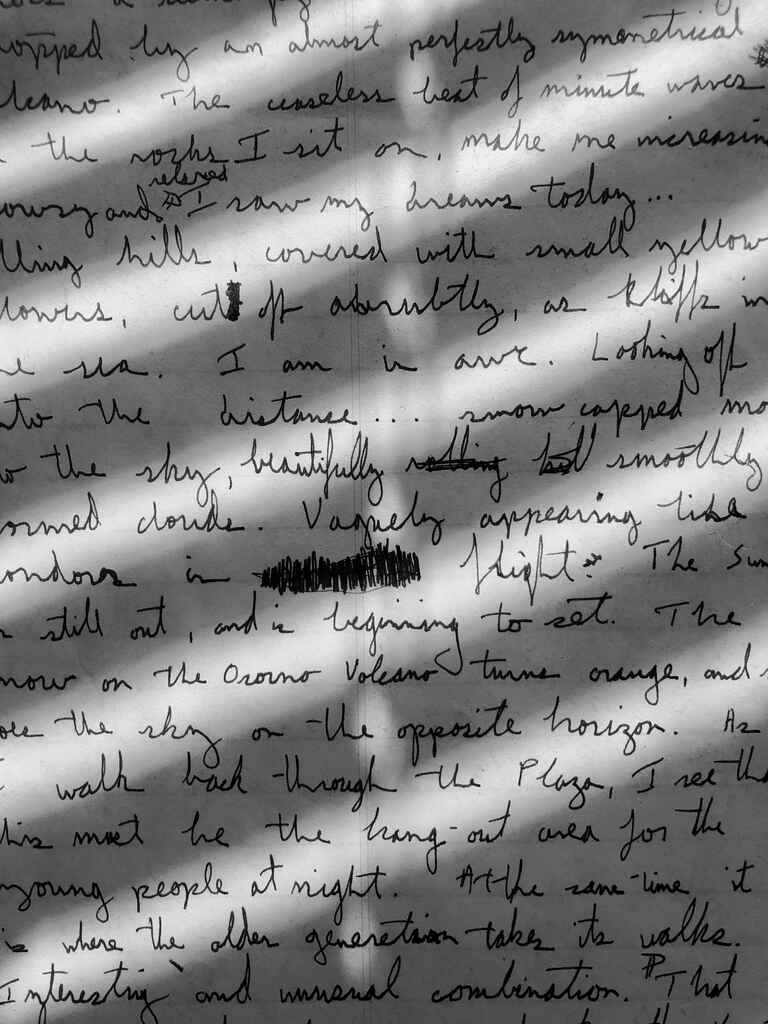 topped by an almost perfectly symmetrical
lcano. The ceaseless beat of minute waves
the rocks I sit on, make me increasin
owsy and relaxed I saw my dreams today...
lling hills, covered with small yellow
lowers, cut off abrubtly, as kliffs in
he sea. I am in awe. Looking off
nto the distance... snow capped mo
to the sky, beautifully smoothly
ormed clouds. Vaguely appearing like
ondors in flight. The Sun
is still out, and is beginning to set. The
now on the Osorno Volcano turns orange, and s
oes the sky on the opposite horizon. As
I walk back through the Plaza, I see tha
his must be the hang-out area for the
young people at night. At the same-time it
is where the older generation takes its walks.
Interesting and unusual combination. That